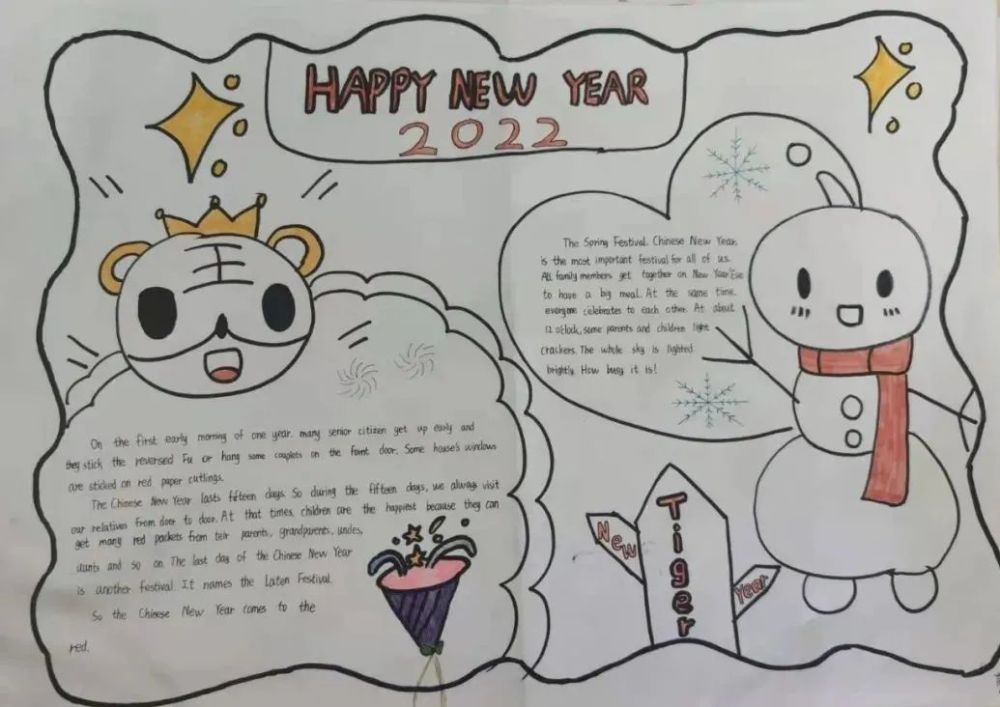 HAPPY NEW YEAR
2022
王
The Spring Festival. Chinese New Year.
is the most important festival for all of us.
All family members get together on New Year Eve
to have a big meal. At the same time.
everyone celebrates to each other. At about
12 o'clock, some parents and children light
crackers. The whole sky is lighted
brightly. How busy it is!
On the first early morning of one year. many senior citizen get up early and
they stick the reversed Fu or hang some couplets on the front door. Some house's windows
are sticked on red paper cuttings.
The Chinese New Year lasts fifteen days. So during the fifteen days, we always visit
our relatives from door to door. At that times, children are the happiest because they can
get many red packets from teir parents, grandparents, uncles,
aunts and so on. The last day of the Chinese New Year
is another festival. It names the Laten Festival.
So the Chinese New Year comes to the
red.
New
Tiger
Year